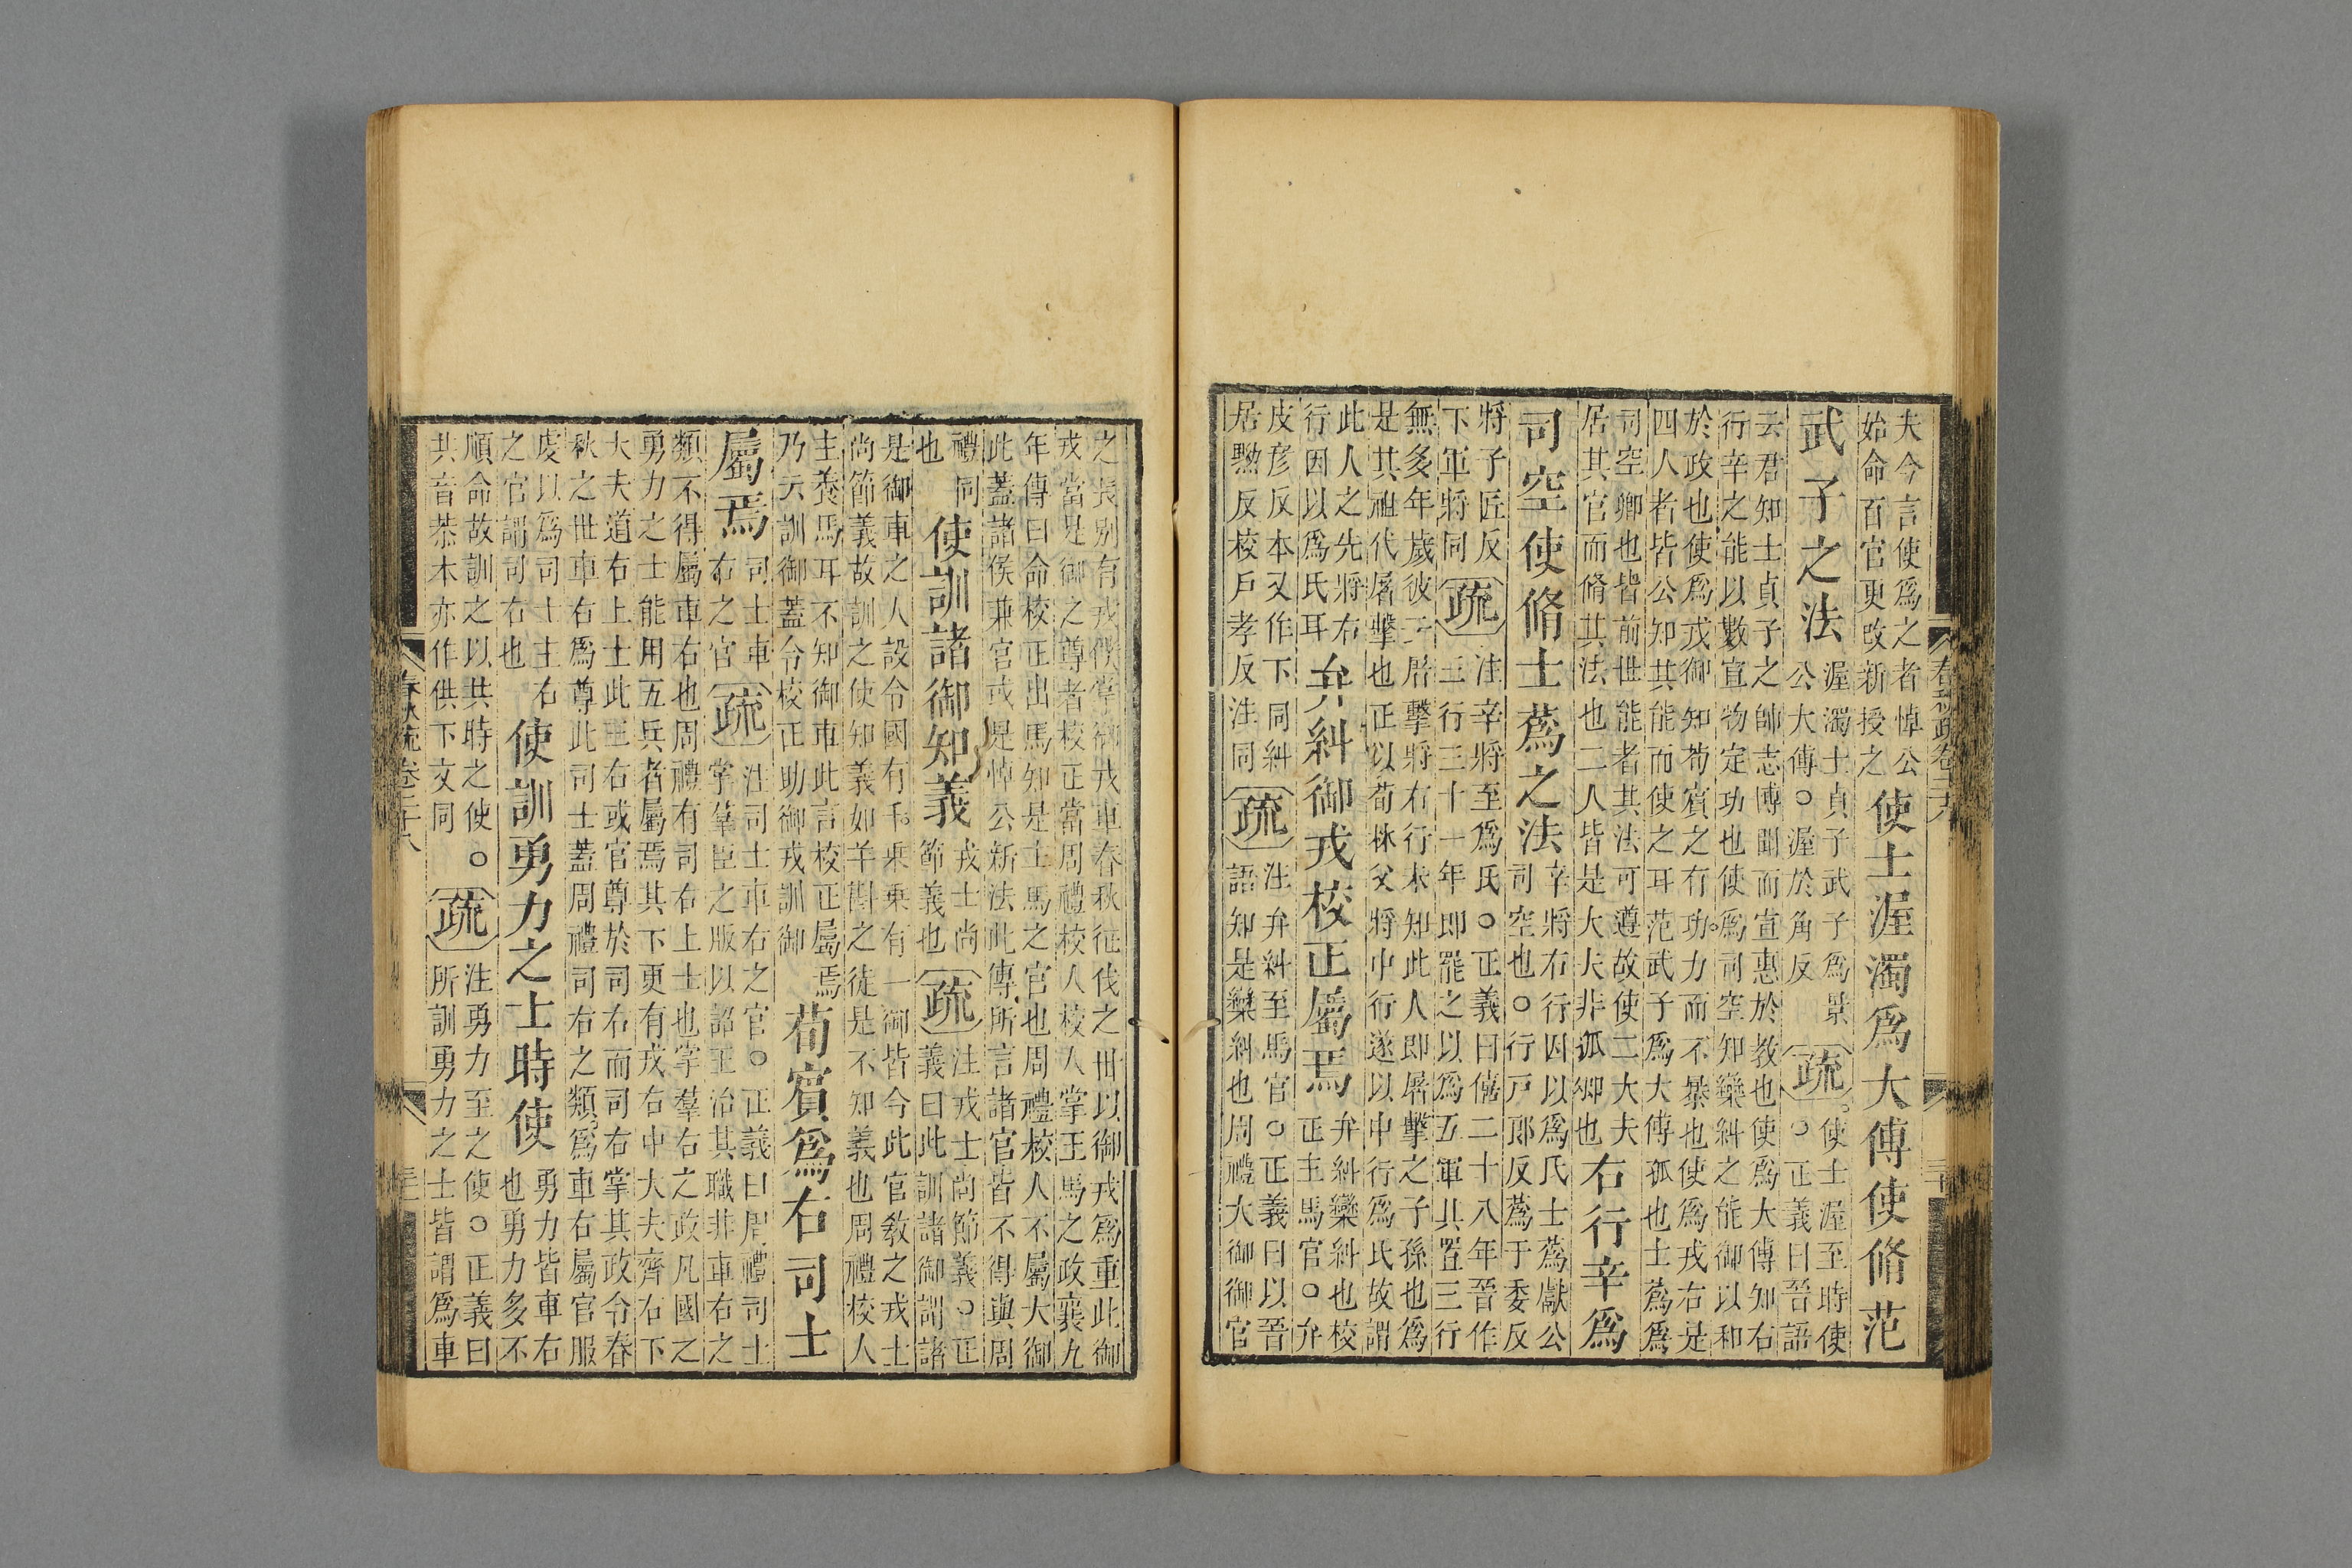 夫今言使爲之者悼公
始命百官更改新授之
使士渥濁爲大傅使脩范
武子之法
渥濁士貞子武子爲景
公大傅○渥於角反
疏
使士渥至時使
○正義曰晉語
云君知士貞子之帥志博聞而宣惠於教也使爲大傅知右
行辛之能以數宣物定功也使爲司空知欒糾之能御以和
於政也使爲戎御知荀賓之有功力而不暴也使爲戎右是
四人者皆公知其能而使之耳范武子爲大傅孤也士蔿爲
司空卿也皆前世能者其法可遵故使二大夫
居其官而脩其法也二人皆是大夫非孤卿也
右行辛爲
司空使脩士蔿之法
辛將右行因以爲氏士蔿獻公
司空也○行戸郎反蔿于委反
將子匠反
下軍將同
疏
注辛將至爲氏○正義曰僖二十八年晉作
三行三十一年即罷之以爲五軍其置三行
無多年歲彼云屠擊將右行未知此人即屠擊之子孫也爲
是其祖代屠擊也正以荀林父將中行遂以中行爲氏故謂
此人之先將右
行因以爲氏耳
弁糾御戎校正屬焉
弁糾欒糾也校
正主馬官○弁
皮彦反本又作下同糾
居黝反校戸孝反注同
疏
注弁糾至馬官○正義曰以晉
語知是欒糾也周禮大御御官
之長別有戎僕掌御戎車春秋征伐之世以御戎爲重此御
戎當是御之尊者校正當周禮校人校人掌王馬之政襄九
年傳曰命校正出馬知是主馬之官也周禮校人不屬大御
此蓋諸侯兼官或是悼公新法此傳所言諸官皆不得與周
禮同
也
使訓諸御知義
戎士尚
節義也
疏
注戎士尚節義○正
義曰此訓諸御謂諸
是御車之人設令國有千乘乘有一御皆今此官教之戎士
尚節義故訓之使知義如羊斟之徒是不知義也周禮校人
主養馬耳不知御車此言校正屬焉
乃云訓御蓋令校正助御戎訓御
荀賓爲右司士
屬焉
司士車
右之官
疏
注司士車右之官○正義曰周禮司士
掌羣臣之版以詔王治其職非車右之
類不得屬車右也周禮有司右上士也掌羣右之政凡國之
勇力之士能用五兵者屬焉其下更有戎右中大夫齊右下
大夫道右上士此三右或官尊於司右而司右掌其政令春
秋之世車右爲尊此司士蓋周禮司右之類爲車右屬官服
虔以爲司士主右
之官謂司右也
使訓勇力之士時使
勇力皆車右
也勇力多不
順命故訓之以共時之使○
共音恭本亦作供下文同
疏
注勇力至之使○正義曰
所訓勇力之士皆謂爲車
春秋疏卷二十八